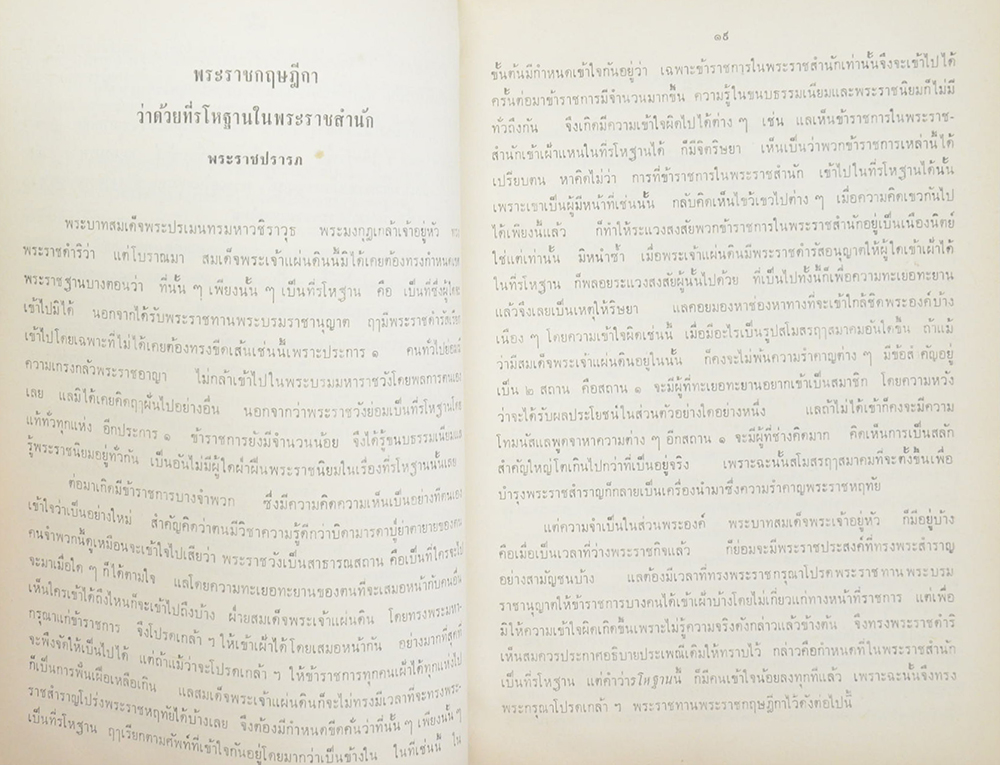 พระราชกฤษฎีกา
ว่าด้วยที่รโหฐานในพระราชสำนัก
พระราชปรารภ
พระบาทสมเด็จพระปรเมนทรมหาวชิราวุธ พระมงกุฎเกล้าเจ้าอยู่หัว
พระราชดำริว่า แต่โบราณมา สมเด็จพระเจ้าแผ่นดินนี้มิได้เคยต้องทรงกำหนดเขต
พระราชฐานบางตอนว่า ที่นั้น ๆ เพียงนั้น ๆ เป็นที่รโหฐาน คือ เป็นที่ซึ่งผู้ใดจะ
เข้าไปมิได้ นอกจากได้รับพระราชทานพระบรมราชานุญาต ฤๅมีพระราชดำรัสเรียก
เข้าไปโดยเฉพาะที่ไม่ได้เคยต้องทรงขีดเส้นเช่นนี้เพราะประการ ๑ คนทั่วไปย่อมมี
ความเกรงกลัวพระราชอาญา ไม่กล้าเข้าไปในพระบรมมหาราชวังโดยพลการตนเอง
เลย แลมิได้เคยคิดฤๅฝันไปอย่างอื่น นอกจากว่าพระราชวังย่อมเป็นที่รโหฐานโดย
แท้ทั่วทุกแห่ง อีกประการ ๑ ข้าราชการยังมีจำนวนน้อย จึงได้รู้ขนบธรรมเนียมและ
รู้พระราชนิยมอยู่ทั่วกัน เป็นอันไม่มีผู้ใดฝ่าฝืนพระราชนิยมในเรื่องที่รโหฐานนั้นเลย
ต่อมาเกิดมีข้าราชการบางจำพวก ซึ่งมีความคิดความเห็นเป็นอย่างที่ตนเอง
เข้าใจว่าเป็นอย่างใหม่ สำคัญคิดว่าตนมีวิชาความรู้ดีกว่าบิดามารดาปู่ย่าตายายของตน
คนจำพวกนี้ดูเหมือนจะเข้าใจไปเสียว่า พระราชวังเป็นสาธารณสถาน คือเป็นที่ใครจะไป
จะมาเมื่อใด ๆ ก็ได้ตามใจ แลโดยความทะเยอทะยานของตนที่จะเสมอหน้ากับคนอื่น
เห็นใครเข้าได้ถึงไหนก็จะเข้าไปถึงบ้าง ฝ่ายสมเด็จพระเจ้าแผ่นดิน โดยทรงพระมหา-
กรุณาแก่ข้าราชการ จึงโปรดเกล้า ฯ ให้เข้าเฝ้าได้โดยเสมอหน้ากัน อย่างมากที่สุดที่
จะพึงจัดให้เป็นไปได้ แต่ถ้าแม้ว่าจะโปรดเกล้า ฯ ให้ข้าราชการทุกคนเฝ้าได้ทุกแห่งไป
ก็เป็นการฟั่นเฝือเหลือเกิน แลสมเด็จพระเจ้าแผ่นดินก็จะไม่ทรงมีเวลาที่จะทรงพระ-
ราชสำราญโปร่งพระราชหฤทัยได้บ้างเลย จึงต้องมีกำหนดขีดคั่นว่าที่นั้น ๆ เพียงนั้น ๆ
เป็นที่รโหฐาน ฤๅเรียกตามศัพท์ที่เข้าใจกันอยู่โดยมากว่าเป็นข้างใน ในที่เช่นนี้ ใน
๑๙
ชั้นต้นมีกำหนดเข้าใจกันอยู่ว่า เฉพาะข้าราชการในพระราชสำนักเท่านั้นจึงจะเข้าไปได้
ครั้นต่อมาข้าราชการมีจำนวนมากขึ้น ความรู้ในขนบธรรมเนียมและพระราชนิยมก็ไม่มี
ทั่วถึงกัน จึงเกิดมีความเข้าใจผิดไปได้ต่าง ๆ เช่น แลเห็นข้าราชการในพระราช-
สำนักเข้าเฝ้าแหนในที่รโหฐานได้ ก็มีจิตริษยา เห็นเป็นว่าพวกข้าราชการเหล่านี้ได้
เปรียบตน หาคิดไม่ว่า การที่ข้าราชการในพระราชสำนัก เข้าไปในที่รโหฐานได้นั้น
เพราะเขาเป็นผู้มีหน้าที่เช่นนั้น กลับคิดเห็นไขว้เขวไปต่าง ๆ เมื่อความคิดเขวกันไป
ได้เพียงนี้แล้ว ก็ทำให้ระแวงสงสัยพวกข้าราชการในพระราชสำนักอยู่เป็นเนืองนิตย์
ใช่แต่เท่านั้น มิหนำซ้ำ เมื่อพระเจ้าแผ่นดินมีพระราชดำรัสอนุญาตให้ผู้ใดเข้าเฝ้าได้
ในที่รโหฐาน ก็พลอยระแวงสงสัยผู้นั้นไปด้วย ที่เป็นไปทั้งนี้ก็เพื่อความทะเยอทะยาน
แล้วจึงเลยเป็นเหตุให้ริษยา แลคอยมองหาช่องหาทางที่จะเข้าให้ชิดพระองค์บ้าง
เนือง ๆ โดยความเข้าใจผิดเช่นนี้ เมื่อมีอะไรเป็นรูปสโมสรฤๅสมาคมอันใดขึ้น ถ้าแม้
ว่ามีสมเด็จพระเจ้าแผ่นดินอยู่ในนั้น ก็คงจะไม่พ้นความรำคาญต่าง ๆ มีข้อสำคัญอยู่
เป็น ๒ สถาน คือสถาน ๑ จะมีผู้ที่ทะเยอทะยานอยากเข้าเป็นสมาชิก โดยความหวัง
ว่าจะได้รับผลประโยชน์ในส่วนตัวอย่างใดอย่างหนึ่ง แลถ้าไม่ได้เข้าก็คงจะมีความ
โทมนัสแลพูดจาหาความต่าง ๆ อีกสถาน ๑ จะมีผู้ที่ช่างคิดมาก คิดเห็นการเป็นสลัก
สำคัญใหญ่โตเกินไปกว่าที่เป็นอยู่จริง เพราะฉะนั้นสโมสรฤๅสมาคมที่จะตั้งขึ้นเพื่อ
บำรุงพระราชสำราญก็กลายเป็นเครื่องนำมาซึ่งความรำคาญพระราชหฤทัย
แต่ความจำเป็นในส่วนพระองค์ พระบาทสมเด็จพระเจ้าอยู่หัว ก็มีอยู่บ้าง
คือเมื่อเป็นเวลาที่ว่างพระราชกิจแล้ว ก็ย่อมจะมีพระราชประสงค์ที่ทรงพระสำราญ
อย่างสามัญชนบ้าง แลต้องมีเวลาที่ทรงพระราชกรุณาโปรดพระราชทานพระบรม
ราชานุญาตให้ข้าราชการบางคนได้เข้าเฝ้าบ้างโดยไม่เกี่ยวแก่ทางหน้าที่ราชการ แต่เพื่อ
มิให้ความเข้าใจผิดเกิดขึ้นเพราะไม่รู้ความจริงดังกล่าวแล้วข้างต้น จึงทรงพระราชดำริ
เห็นสมควรประกาศอธิบายประเพณีเดิมให้ทราบไว้ กล่าวคือกำหนดที่ในพระราชสำนัก
เป็นที่รโหฐาน แต่คำว่ารโหฐานนี้ ก็มีคนเข้าใจน้อยลงทุกทีแล้ว เพราะฉะนั้นจึงทรง
พระกรุณาโปรดเกล้า ฯ พระราชทานพระราชกฤษฎีกาไว้ดังต่อไปนี้